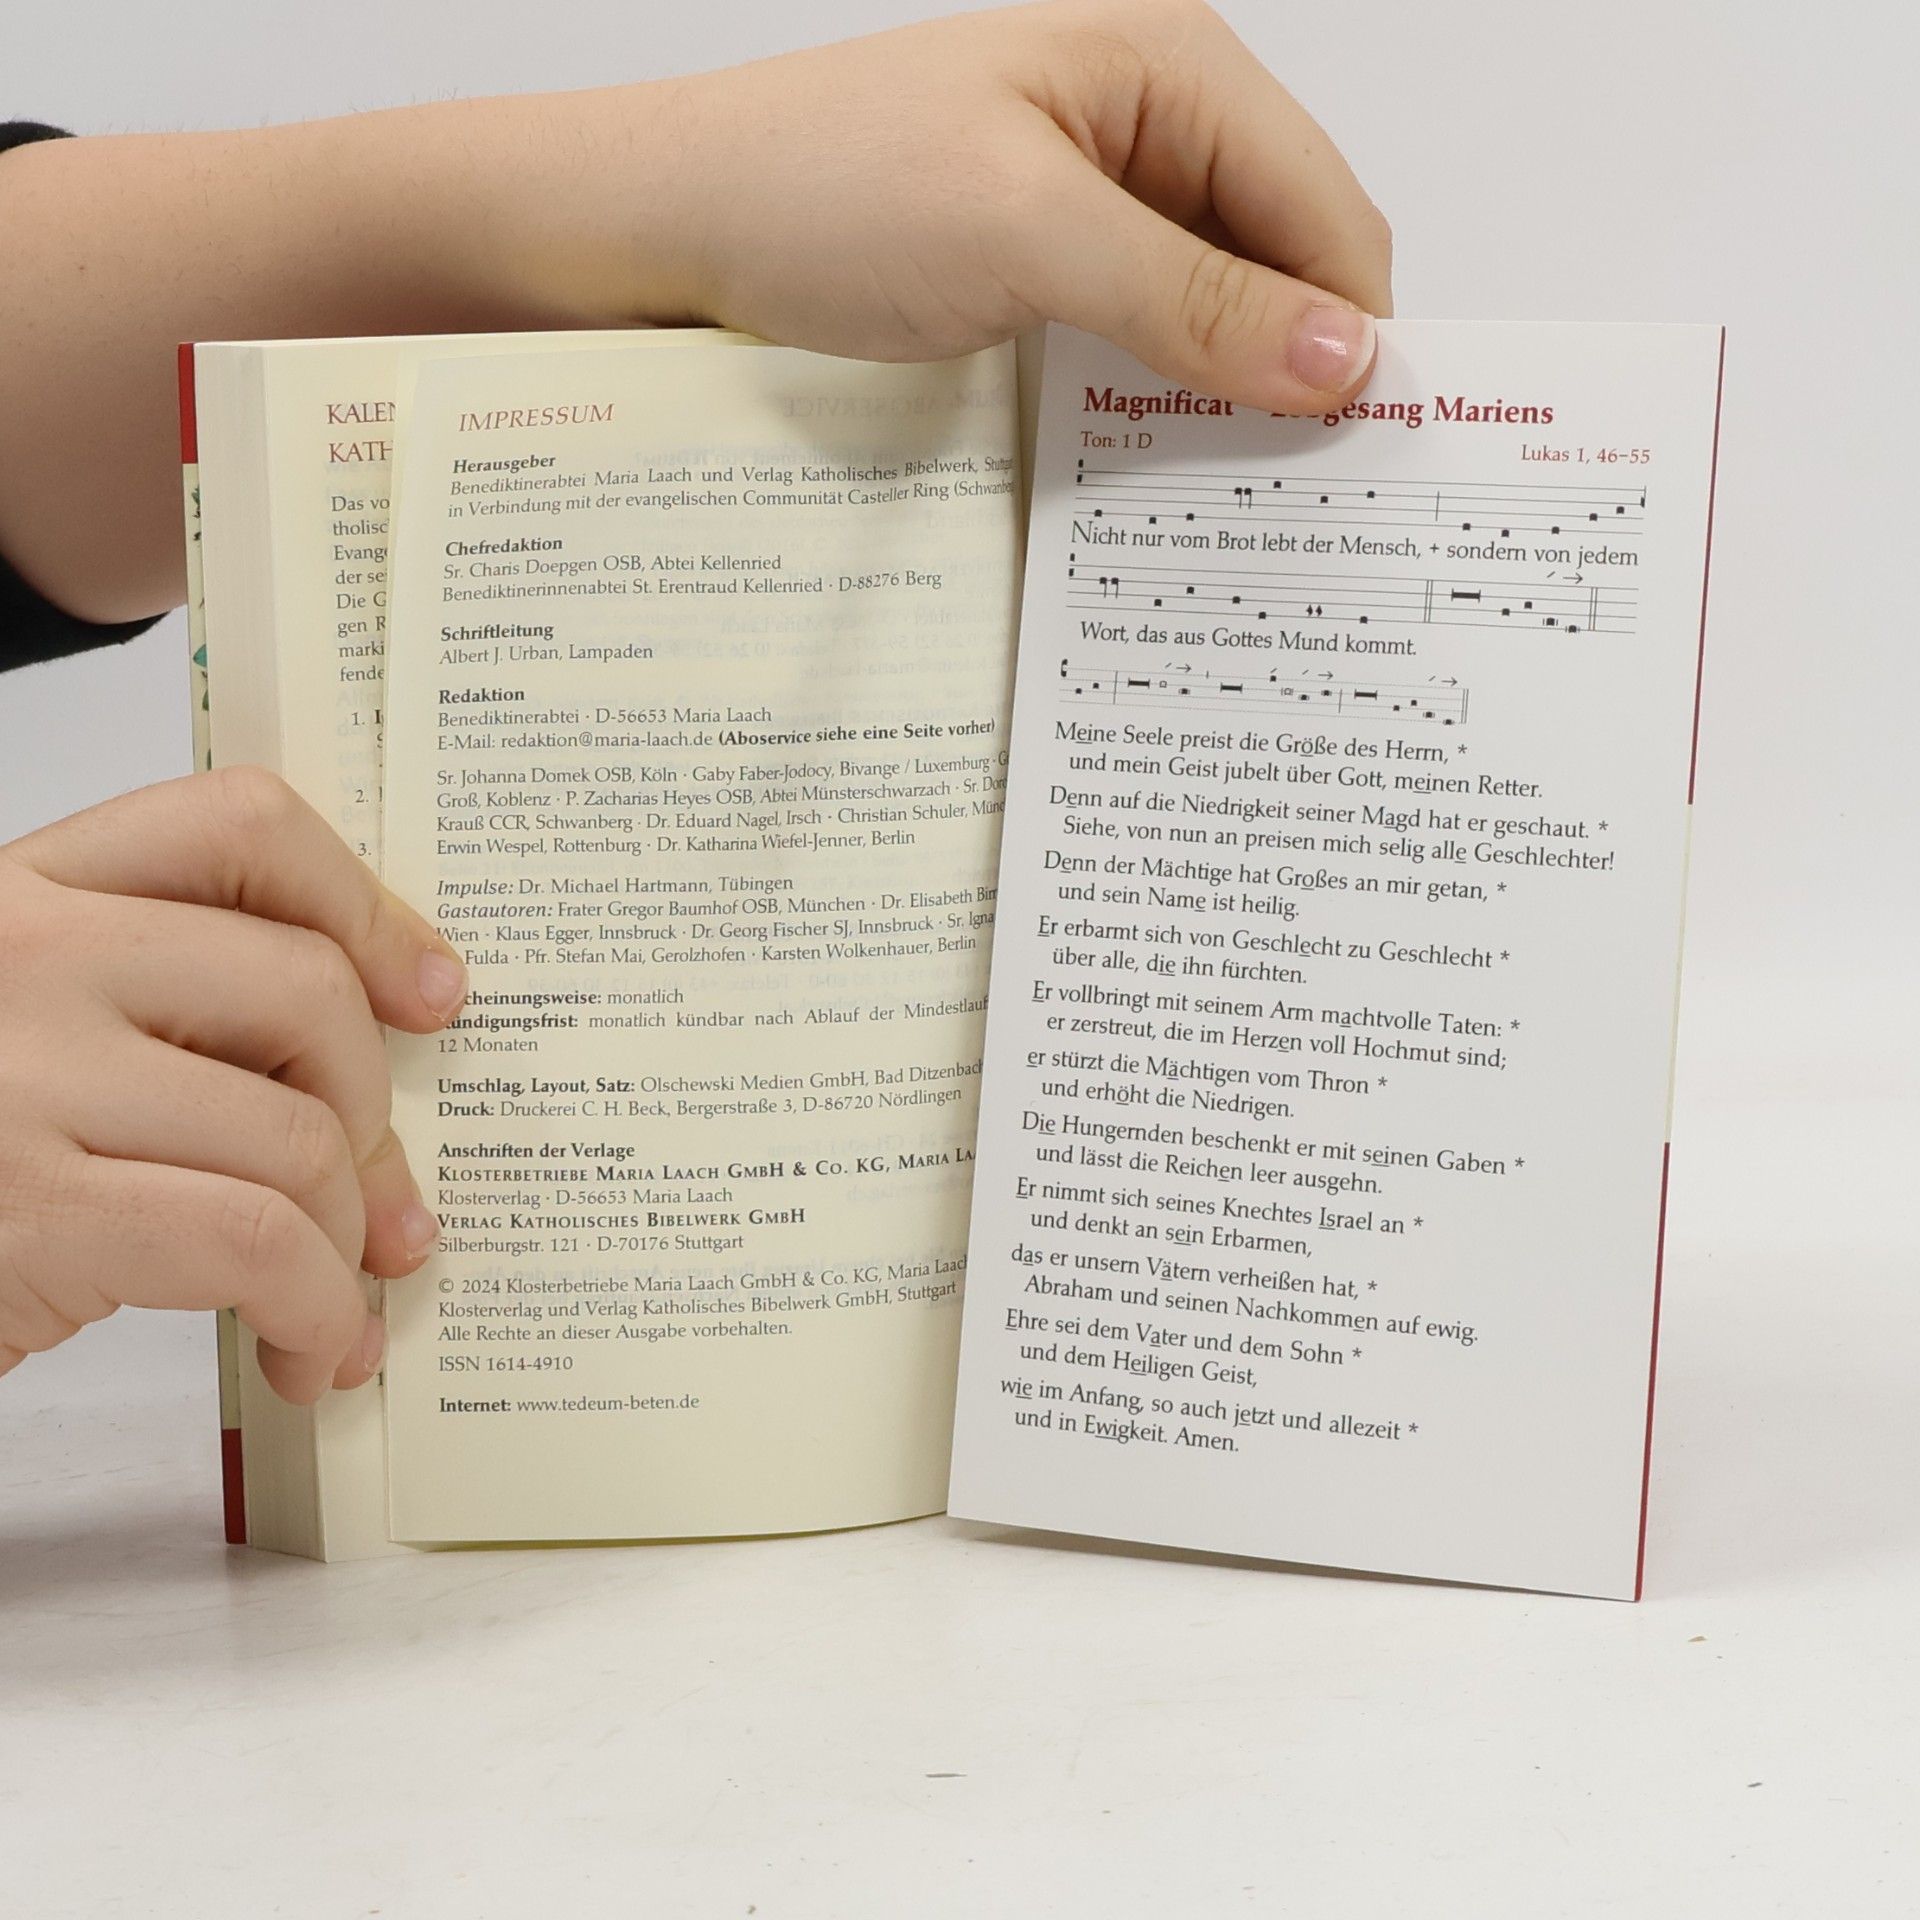 KATH
Das vo
der se
Die G
gen R
marki
fende
1.
2.
3.
IMPRESSUM
Herausgeber
Benediktinerabtei Maria Laach und Verlag Katholisches Bibelwerk,
in Verbindung mit der evangelischen Communität Casteller Ring
Chefredaktion
Sr. Charis Doepgen OSB, Abtei Kellenried
Benediktinerinnenabtei St. Erentraud Kellenried · D-88276 Berg
Schriftleitung
Albert J. Urban, Lampaden
Redaktion
Benediktinerabtei · D-56653 Maria Laach
E-Mail: redaktion@maria-laach.de (Aboservice siehe eine Seite vorher)
Sr. Johanna Domek OSB, Köln · Gaby Faber-Jodocy, Bivange / Luxemburg ·
Groß, Koblenz · P. Zacharias Heyes OSB, Abtei Münsterschwarzach · Sr.
Krauß CCR, Schwanberg · Dr. Eduard Nagel, Irsch · Christian Schuler,
Erwin Wespel, Rottenburg · Dr. Katharina Wiefel-Jenner, Berlin
Impulse: Dr. Michael Hartmann, Tübingen
Gastautoren: Frater Gregor Baumhof OSB, München · Dr. Elisabeth
Wien · Klaus Egger, Innsbruck · Dr. Georg Fischer SJ, Innsbruck · Sr.
Fulda · Pfr. Stefan Mai, Gerolzhofen · Karsten Wolkenhauer, Berlin
cheinungsweise: monatlich
ündigungsfrist: monatlich kündbar nach Ablauf der Mindestlauf
12 Monaten
Umschlag, Layout, Satz: Olschewski Medien GmbH, Bad Ditzenbach
Druck: Druckerei C. H. Beck, Bergerstraße 3, D-86720 Nördlingen
Anschriften der Verlage
KLOSTERBETRIEBE MARIA LAACH GMBH & CO. KG, MARIA LA
Klosterverlag · D-56653 Maria Laach
VERLAG KATHOLISCHES BIBELWERK GMBH
Silberburgstr. 121 · D-70176 Stuttgart
© 2024 Klosterbetriebe Maria Laach GmbH & Co. KG, Maria Laach
Klosterverlag und Verlag Katholisches Bibelwerk GmbH, Stuttgart
Alle Rechte an dieser Ausgabe vorbehalten.
ISSN 1614-4910
Internet: www.tedeum-beten.de
Magnificat gesang Mariens
Ton: 1 D
Lukas 1, 46–55
Nicht nur vom Brot lebt der Mensch, + sondern von jedem
Wort, das aus Gottes Mund kommt.
Meine Seele preist die Größe des Herrn, *
und mein Geist jubelt über Gott, meinen Retter.
Denn auf die Niedrigkeit seiner Magd hat er geschaut. *
Siehe, von nun an preisen mich selig alle Geschlechter!
Denn der Mächtige hat Großes an mir getan, *
und sein Name ist heilig.
Er erbarmt sich von Geschlecht zu Geschlecht *
über alle, die ihn fürchten.
Er vollbringt mit seinem Arm machtvolle Taten: *
er zerstreut, die im Herzen voll Hochmut sind;
er stürzt die Mächtigen vom Thron *
und erhöht die Niedrigen.
Die Hungernden beschenkt er mit seinen Gaben *
und lässt die Reichen leer ausgehn.
Er nimmt sich seines Knechtes Israel an *
und denkt an sein Erbarmen,
das er unsern Vätern verheißen hat, *
Abraham und seinen Nachkommen auf ewig.
Ehre sei dem Vater und dem Sohn *
und dem Heiligen Geist,
wie im Anfang, so auch jetzt und allezeit *
und in Ewigkeit. Amen.